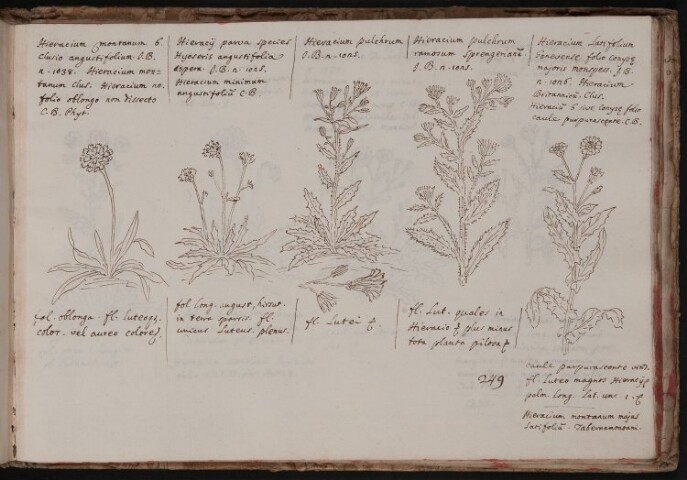 Hieracium montanum 6.
Clusio angustifolium J.B.
n. 1038. Hieracium mon-
tanum Clus. Hieracium
folio oblongo non dissecto
C.B. Phyt.
Hieracij parva species
Hyoseris angustifolia
aspera. J.B. n. 1025.
Hieracium minimum
angustifoliũ C.B.
Hieracium pulchrum
J.B. n. 1025.
Hieracium pulchrum
ramosum Sprengerianũ.
J.B. n. 1025.
Hieracium Latifolium
folio Conyzę
majoris monspess. J.B.
n. 1026. Hieracium
Britanicũ. Clus.
Hieraciũ 6 sive Conyzę folio
caule purpurascente C.B.
fol. oblonga. fl. luteo
color. vel aureo colore
fol. long. august. hirsut.
in terra sparsis. fl.
unicus Luteus. plenus.
fl. Lutei
fl. Lut. quales in
Hieracio plus minus
tota planta pilosa
caule purpurascente
fl. Luteo magnos Hieracij
palm. long. Lat. unc.
249
Hieracium montanum majus
Latifoliũ. Tabernamontani.